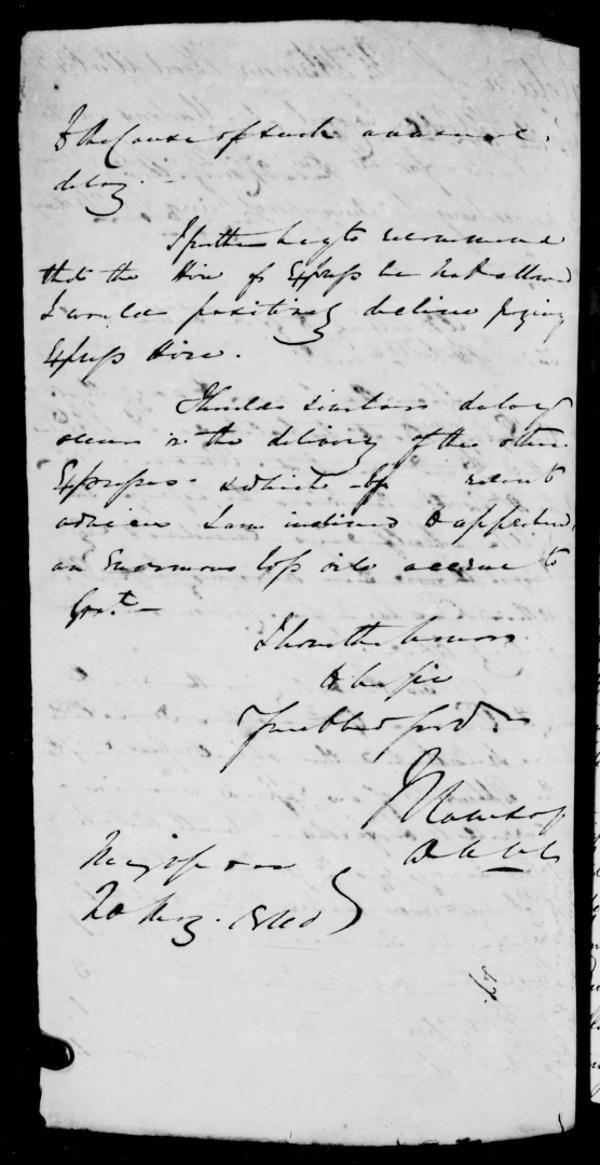 to the Cause of such a
delay. —
I further beg to recommend
that the Hire of Express be not allowed
I would positively decline paying
Express Hire.
Should similar delay
occur in the delivery of the other
Expresses - which by recent
advices I am inclined to apprehend,
an Enormous loss will accrue to
Govt. —
I have the honor
to be Sir
Your Obed Servt
20 May. 1840